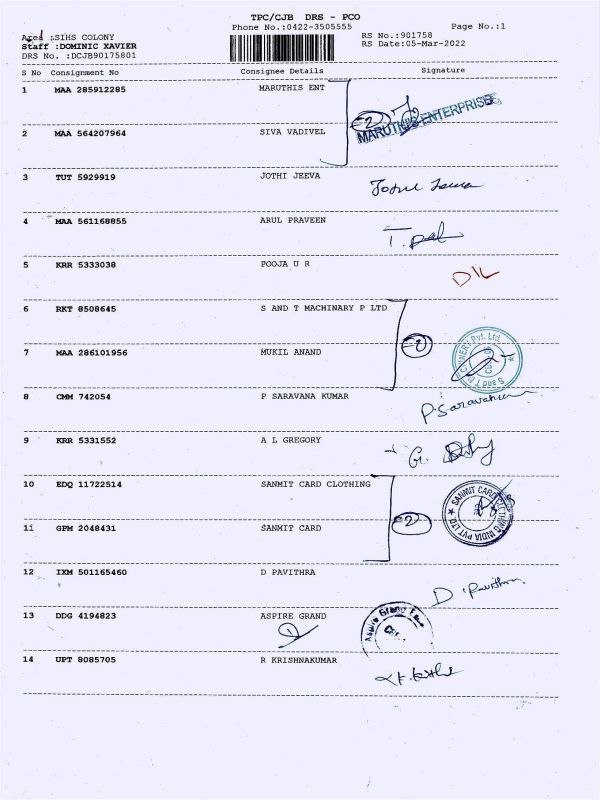 TPC/CJB DRS - PCO
Phone No.:0422-3505555 Page No.:1
Area :SIHS COLONY RS No.:901758
Staff :DOMINIC XAVIER RS Date:05-Mar-2022
DRS No. :DCJB90175801
S No Consignment No Consignee Details Signature
1 MAA 285912285 MARUTHIS ENT
2 MARUTHIS ENTERPRISES
2 MAA 564207964 SIVA VADIVEL
3 TUT 5929919 JOTHI JEEVA
4 MAA 561168855 ARUL PRAVEEN
5 KRR 5333038 POOJA U R
6 RKT 8508645 S AND T MACHINARY P LTD
2
7 MAA 286101956 MUKIL ANAND
8 CMM 742054 P SARAVANA KUMAR
P. Saravana
9 KRR 5331552 A L GREGORY
10 EDQ 11722514 SANMIT CARD CLOTHING
2 SANMIT CARD CLOTHING INDIA PVT LTD
11 GPM 2048431 SANMIT CARD
12 IXM 501165460 D PAVITHRA
D. Pavithra
13 DDG 4194823 ASPIRE GRAND
Aspire Grand
14 UPT 8085705 R KRISHNAKUMAR